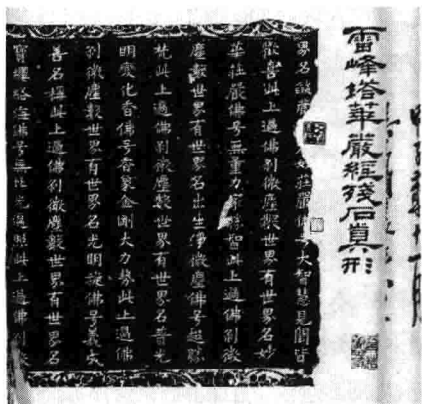 雷峰塔華嚴經殘石真形
界名莊嚴佛号大智慧見聞皆
歡喜此上過佛刹微塵數世界有世界名妙
華莊嚴佛号無量力最勝智此上過佛刹微
塵數世界有世界名出生淨微塵佛号超勝
梵此上過佛刹微塵數世界有世界名普光
明變化香佛号香象金剛大力勢此上過佛
刹微塵數世界有世界名光明旋佛号義成
善名稱此上過佛刹微塵數世界有世界名
寶瓔珞海佛号無比光遍照此上過佛刹微